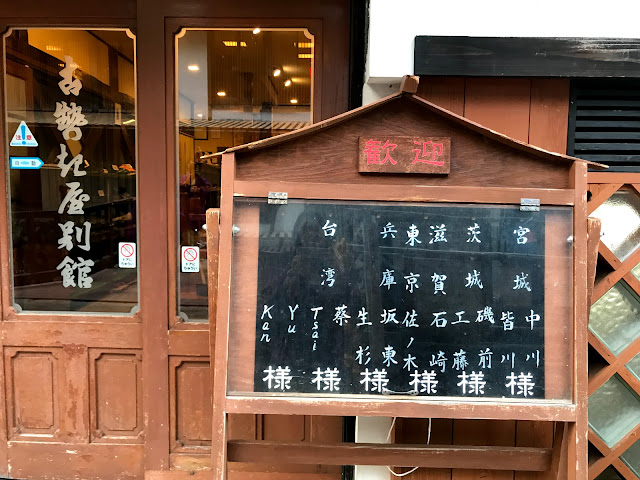 古勢起屋別館
注意
自動
歡迎
宮城
中川
皆川
様
茨城
磯前
工藤
様
滋賀
石崎
東京
佐ノ木
様
兵庫
坂東
生杉
様
台湾
蔡
Tsai
様
Yu
Kan
様